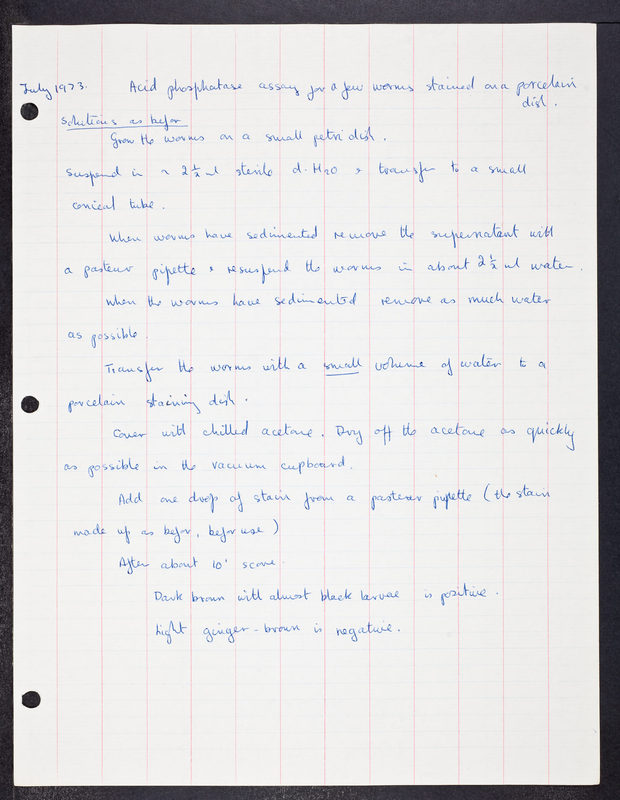 July 1973. Acid phosphatase assay for a few worms stained on a porcelain
dish.
Solutions as before
Grow the worms on a small petri dish.
Suspend in ~ 2½ ml sterile d. H2O & transfer to a small
conical tube.
When worms have sedimented remove the supernatant with
a pasteur pipette & resuspend the worms in about 2½ ml water.
When the worms have sedimented remove as much water
as possible.
Transfer the worms with a small volume of water to a
porcelain staining dish.
Cover with chilled acetone. Dry off the acetone as quickly
as possible in the vacuum cupboard.
Add one drop of stain from a pasteur pipette (the stain
made up as before, before use)
After about 10' score.
Dark brown with almost black larvae is positive.
Light ginger-brown is negative.